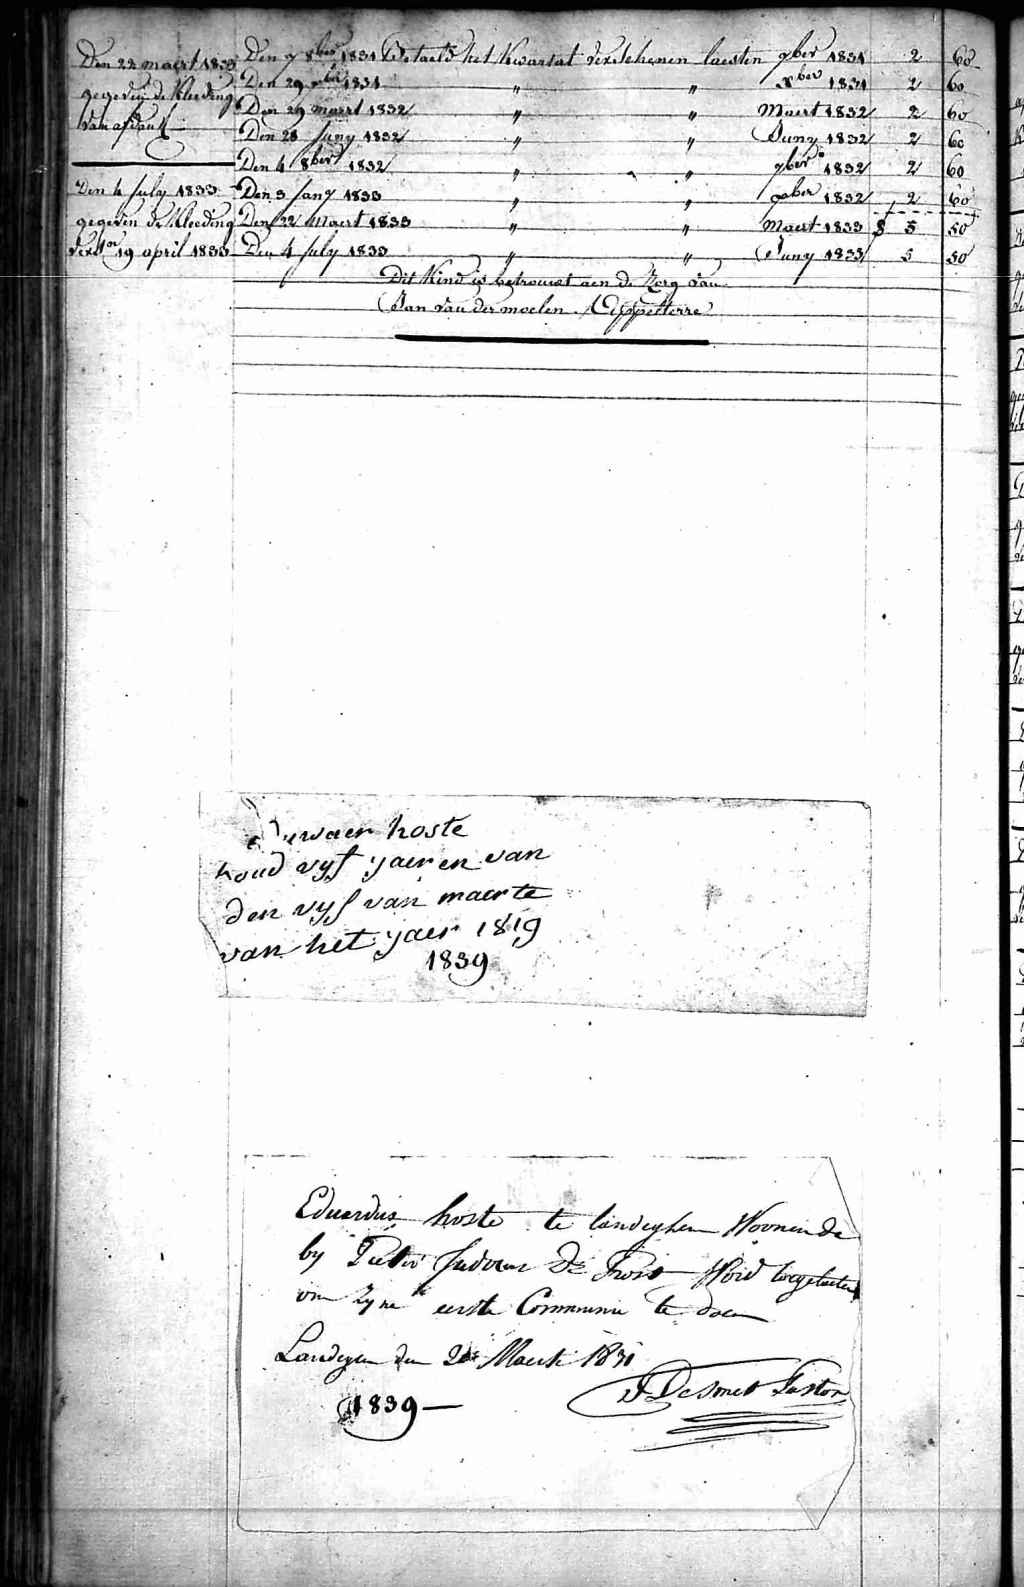 Den 22 maert 1833
gegeven de Kleeding
van afdank
Den 4 July 1833
gegeven de Kleeding
verst.en 19 april 1833
Den 7 8ber 1831 Betaeld het Kwartaal verschenen laesten 7ber 1831 2 60
Den 29 xber 1831 " " xber 1831 2 60
Den 29 maert 1832 " " Maert 1832 2 60
Den 28 Juny 1832 " " Juny 1832 2 60
Den 4 8ber 1832 " " 7ber 1832 2 60
Den 3 Jany 1833 " " xber 1832 2 60
Den 22 Maert 1833 " " Maert 1833 5 50
Den 4 July 1833 " " Juny 1833 5 50
Dit Kind is betrouwt aen de Zorg van
Jan van der moelen
hoste
houd vyf yaer en van
den vyf van maerte
van het yaer 1819
1839
Eduardus hoste te landeghem Woonende
by Pieter Judocus De Word toegelaeten
om Zyne eerste Communie te doen
Landegem den 20 Maert 1831
J Desmet Pastor
1839